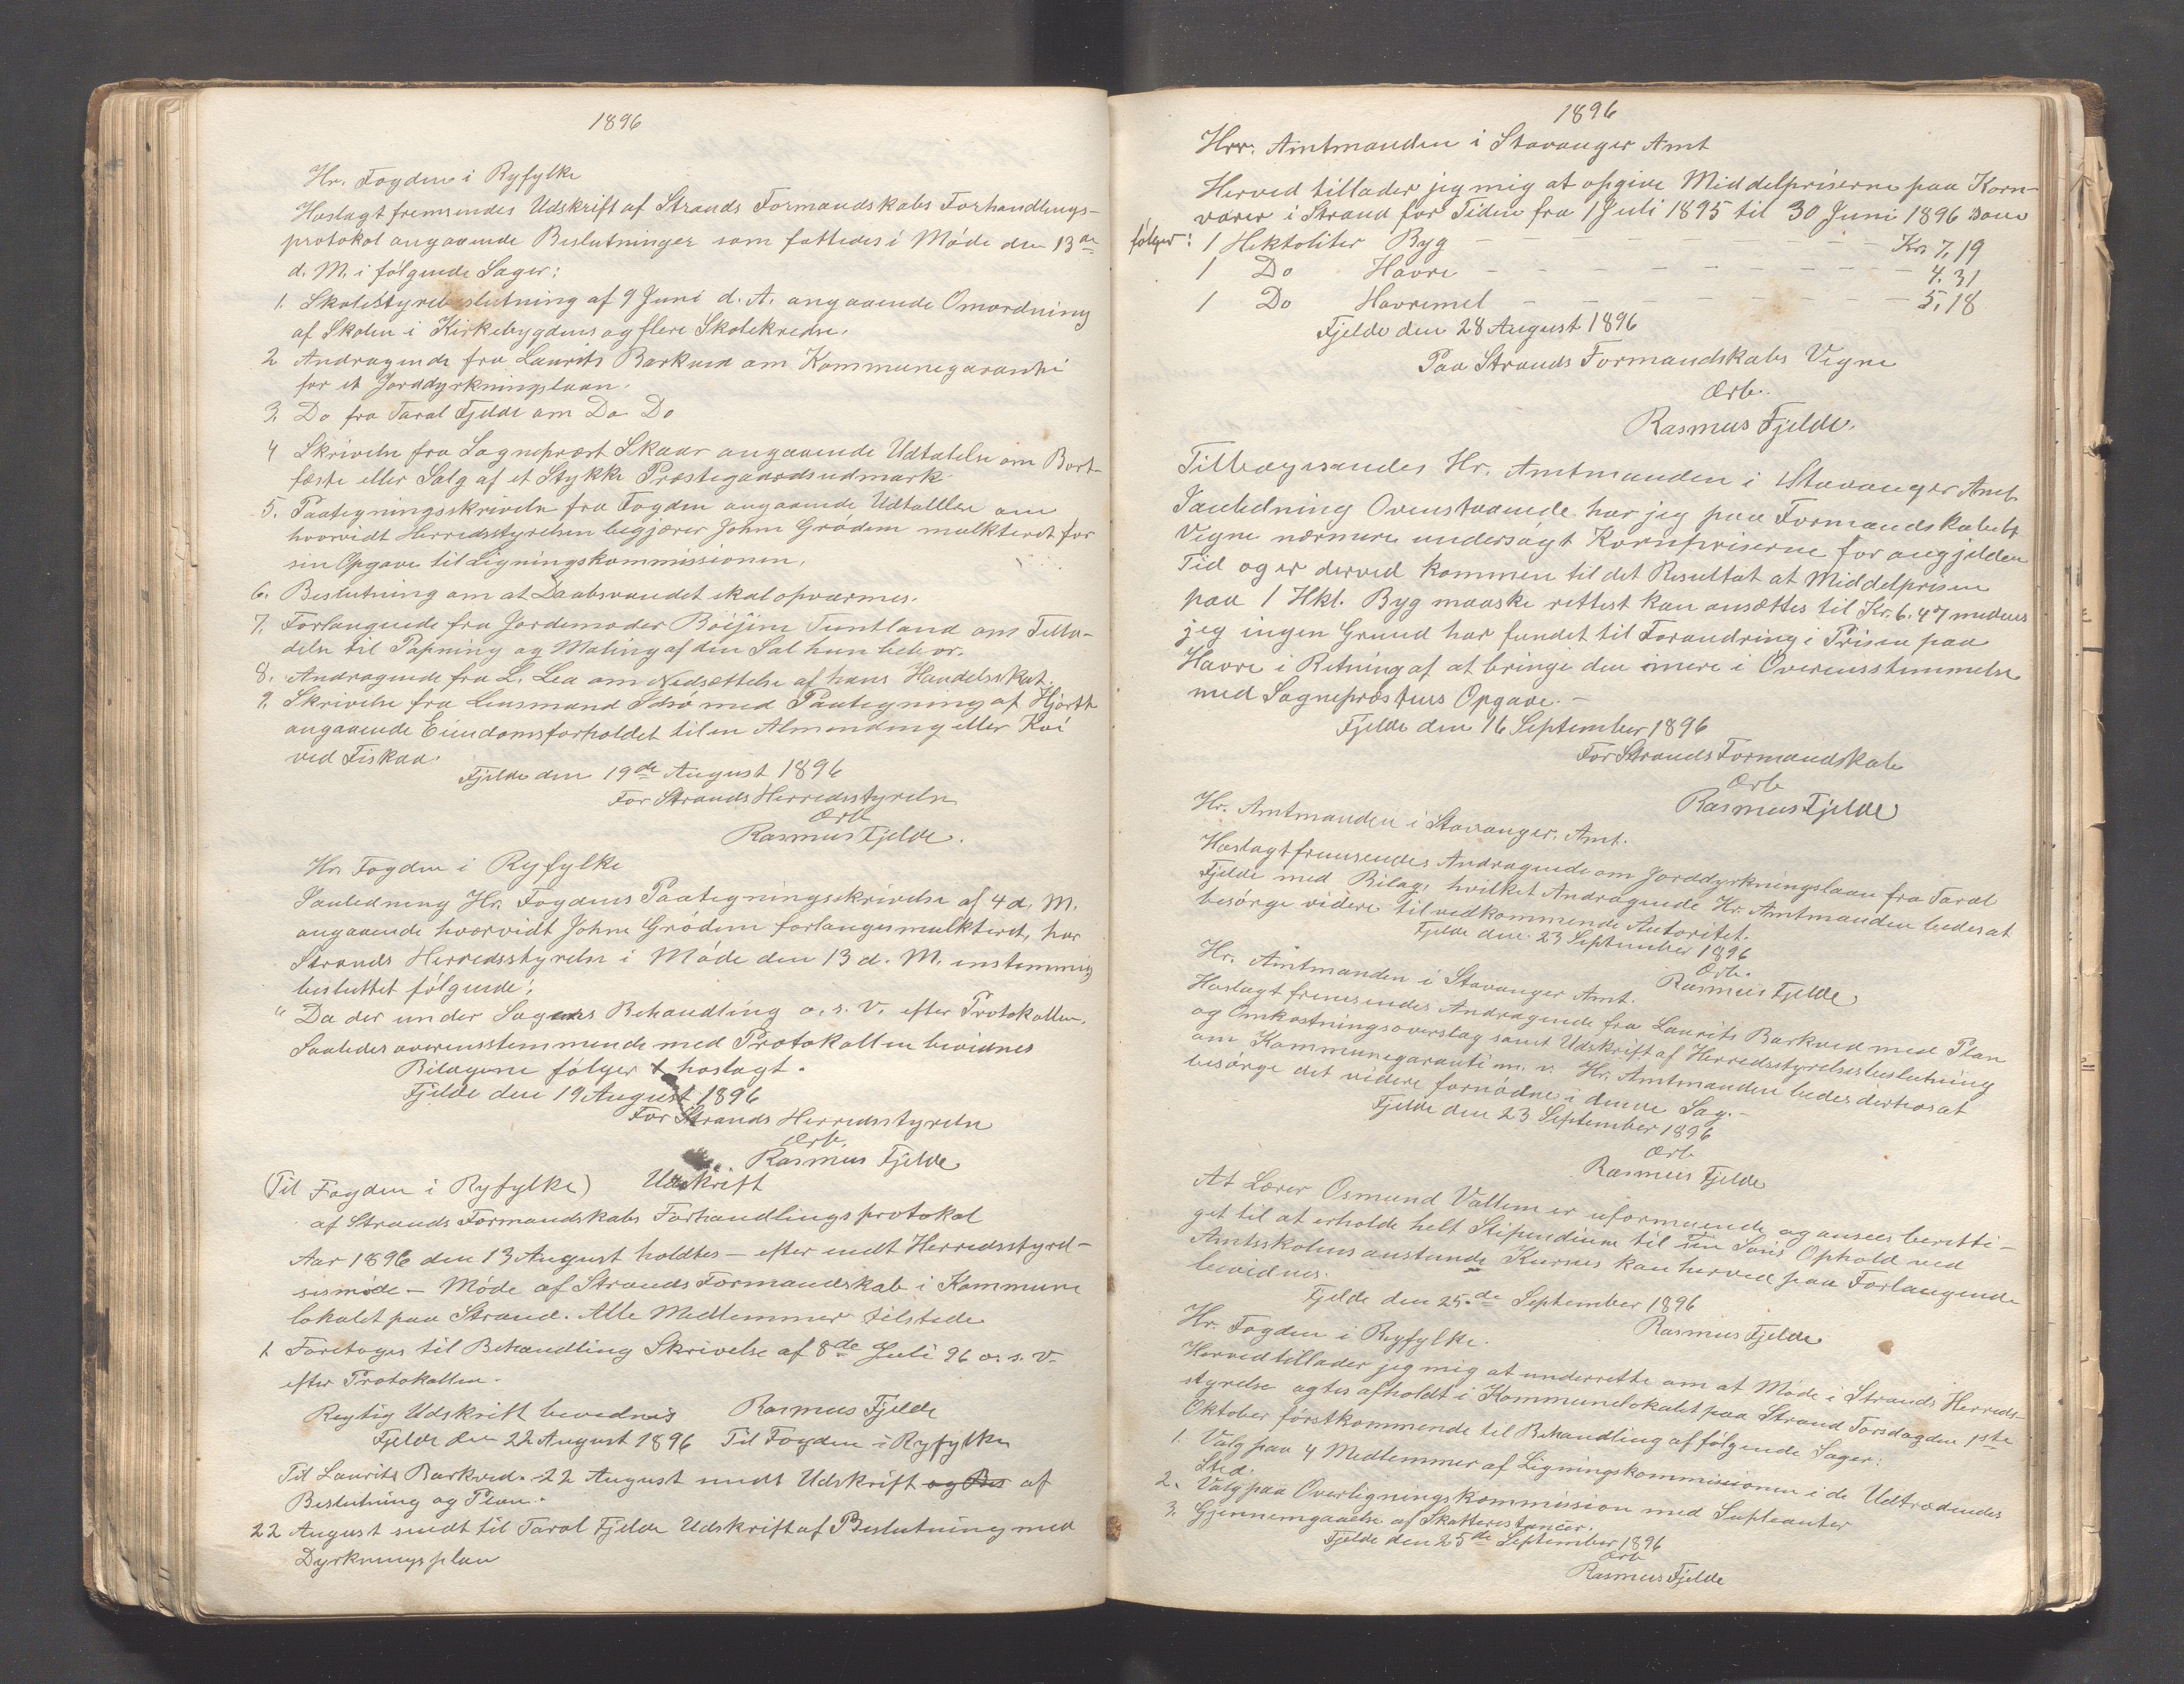 1896
Hr. Fogden i Ryfylke
Hoslagt fremsendes Udskrift af Strands Formandskabs Forhandlings-
protokol angaaende Beslutninger som fattedes i Møde den 13de
d. M. i følgende Sager:
1. Skolestyrebeslutning af 9 Juni d. A. angaaende Omordning
af Skolen i Kirkebygdens og flere Skolekredse.
2 Andragende fra Laurits Barkved om Kommunegaranti
for et Jorddyrkningslaan.
3. Do fra Taral Fjelde om Do Do
4 Skrivelse fra Sogneprest Skaar angaaende Udtalelse om Bort-
fæste eller Salg af et Stykke Præstegaardsudmark
5. Paategningsskrivelse fra Fogden angaaende Udtallelse om
hvorvidt Herredsstyrelsen begjærer John Grödem mulkteret for
sin Opgave til Ligningskommissionen.
6. Beslutning om at Daabsvandet skal opvarmes.
7. Forlangende fra Jordemoder Tuntland om Tilla-
delse til Papning og Maling af den Sal hun bebor.
8. Andragende fra L. Lea om Nedsættelse af hans Handelsskat.
9. Skrivelse fra Lensmand Idsø med Paategning af Hjorth
angaaende Eiendomsforholdet til en Almending eller Kvi
ved Fiskaa.
Fjelde den 19de August 1896
For Strands Herredsstyrelse
Ærb
Rasmus Fjelde.
Hr. Fogden i Ryfylke
I anledning Hr. Fogdens Paategningsskrivelse af 4 d. M.
angaaende hvorvidt John Grödem forlanges mulkteret, har
Strands Herredsstyrelse i Møde den 13 d. M. enstemmig
besluttet følgende:
"Da der under Sagens Behandling o. s. v. efter Protokollen.
Saaledes overensstemmende med Protokollen bevidnes
Bilagene følger hoslagt.
Fjelde den 19 August 1896
For Strands Herredsstyrelse
Ærb.
Rasmus Fjelde
(Til Fogden i Ryfylke) Udskrift
af Strands Formandskabs Forhandlingsprotokol
Aar 1896 den 13 August holdtes – efter endt Herredsstyrel-
sesmøde – Møde af Strands Formandskab i Kommune
lokalet paa Strand. Alle Medlemmer tilstede
1. Foretoges til Behandling Skrivelse af 8de Juli 96 o. s. v.
efter Protokollen.
Rigtig Udskrift bevidnes Rasmus Fjelde
Fjelde den 22 August 1896 Til Fogden i Ryfylke
Til Laurits Barkved. 22 August sendt Udskrift og Bes af
Beslutning og Plan.
22 August sendt til Taral Fjelde Udskrift af Beslutning med
Dyrkningsplan
1896
Hrr. Amtmanden i Stavanger Amt
Herved tillader jeg mig at opgive Middelpriserne paa Korn-
varer i Strand for Tiden fra 1 Juli 1895 til 30 Juni 1896 som
følger: 1 Hektoliter Byg – – – – – – – Kr. 7,19
1 Do Havre – – – – – – – – – 4.31
1 Do Havremel – – – – – – – 5,18
Fjelde den 28 August 1896
Paa Strands Formandskabs Vegne
Ærb.
Rasmus Fjelde.
Tilbagesendes Hr. Amtmanden i Stavanger Amt.
I anledning Ovenstaaende har jeg paa Formandskabets
Vegne nærmere undersøgt Kornpriserne for angjeldende
Tid og er derved kommen til det Resultat at Middelprisen
paa 1 Hkl. Byg maaske rettest kan ansættes til Kr. 6.47 medens
jeg ingen Grund har fundet til Forandring i Prisen paa
Havre i Retning af at bringe den mere i Overensstemmelse
med Sogneprestens Opgave. –
Fjelde den 16 September 1896
For Strands Formandskab
Ærb
Rasmus Fjelde
Hr. Amtmanden i Stavanger Amt.
Hoslagt fremsendes Andragende om Jorddyrkningslaan fra Taral
Fjelde med Bilag, hvilket Andragende Hr. Amtmanden bedes at
besørge videre til vedkommende Autoritet.
Fjelde den 23 September 1896
Ærb.
Rasmus Fjelde
Hr. Amtmanden i Stavanger Amt.
Hoslagt fremsendes Andragende fra Laurits Barkved med Plan
og Omkostningsoverslag samt Udskrift af Herredsstyrelsesbeslutning
om Kommunegaranti m. v. Hr. Amtmanden bedes derhos at
besørge det videre fornødne i denne Sag. –
Fjelde den 23 September 1896
Ærb
Rasmus Fjelde
At Lærer Osmund Vatlem er uformuende og ansees beretti-
get til at erholde helt Stipendium til sin Søns Ophold ved
Amtsskolens anstundende Kursus kan herved paa Forlangende
bevidnes.
Fjelde den 25de September 1896
Rasmus Fjelde
Hr. Fogden i Ryfylke.
Herved tillader jeg mig at underrette om at Møde i Strands Herreds-
styrelse agtes afholdt i Kommunelokalet paa Strand Torsdag den 1ste
Oktober førstkommende til Behandling af følgende Sager:
1. Valg paa 4 Medlemmer af Ligningskommissionen i de Udtrædendes
Sted.
2. Valg paa Overligningskommission med Supleanter
3. Gjennemgaaelse af Skatterestancer.
Fjelde den 25de September 1896
Ærb
Rasmus Fjelde